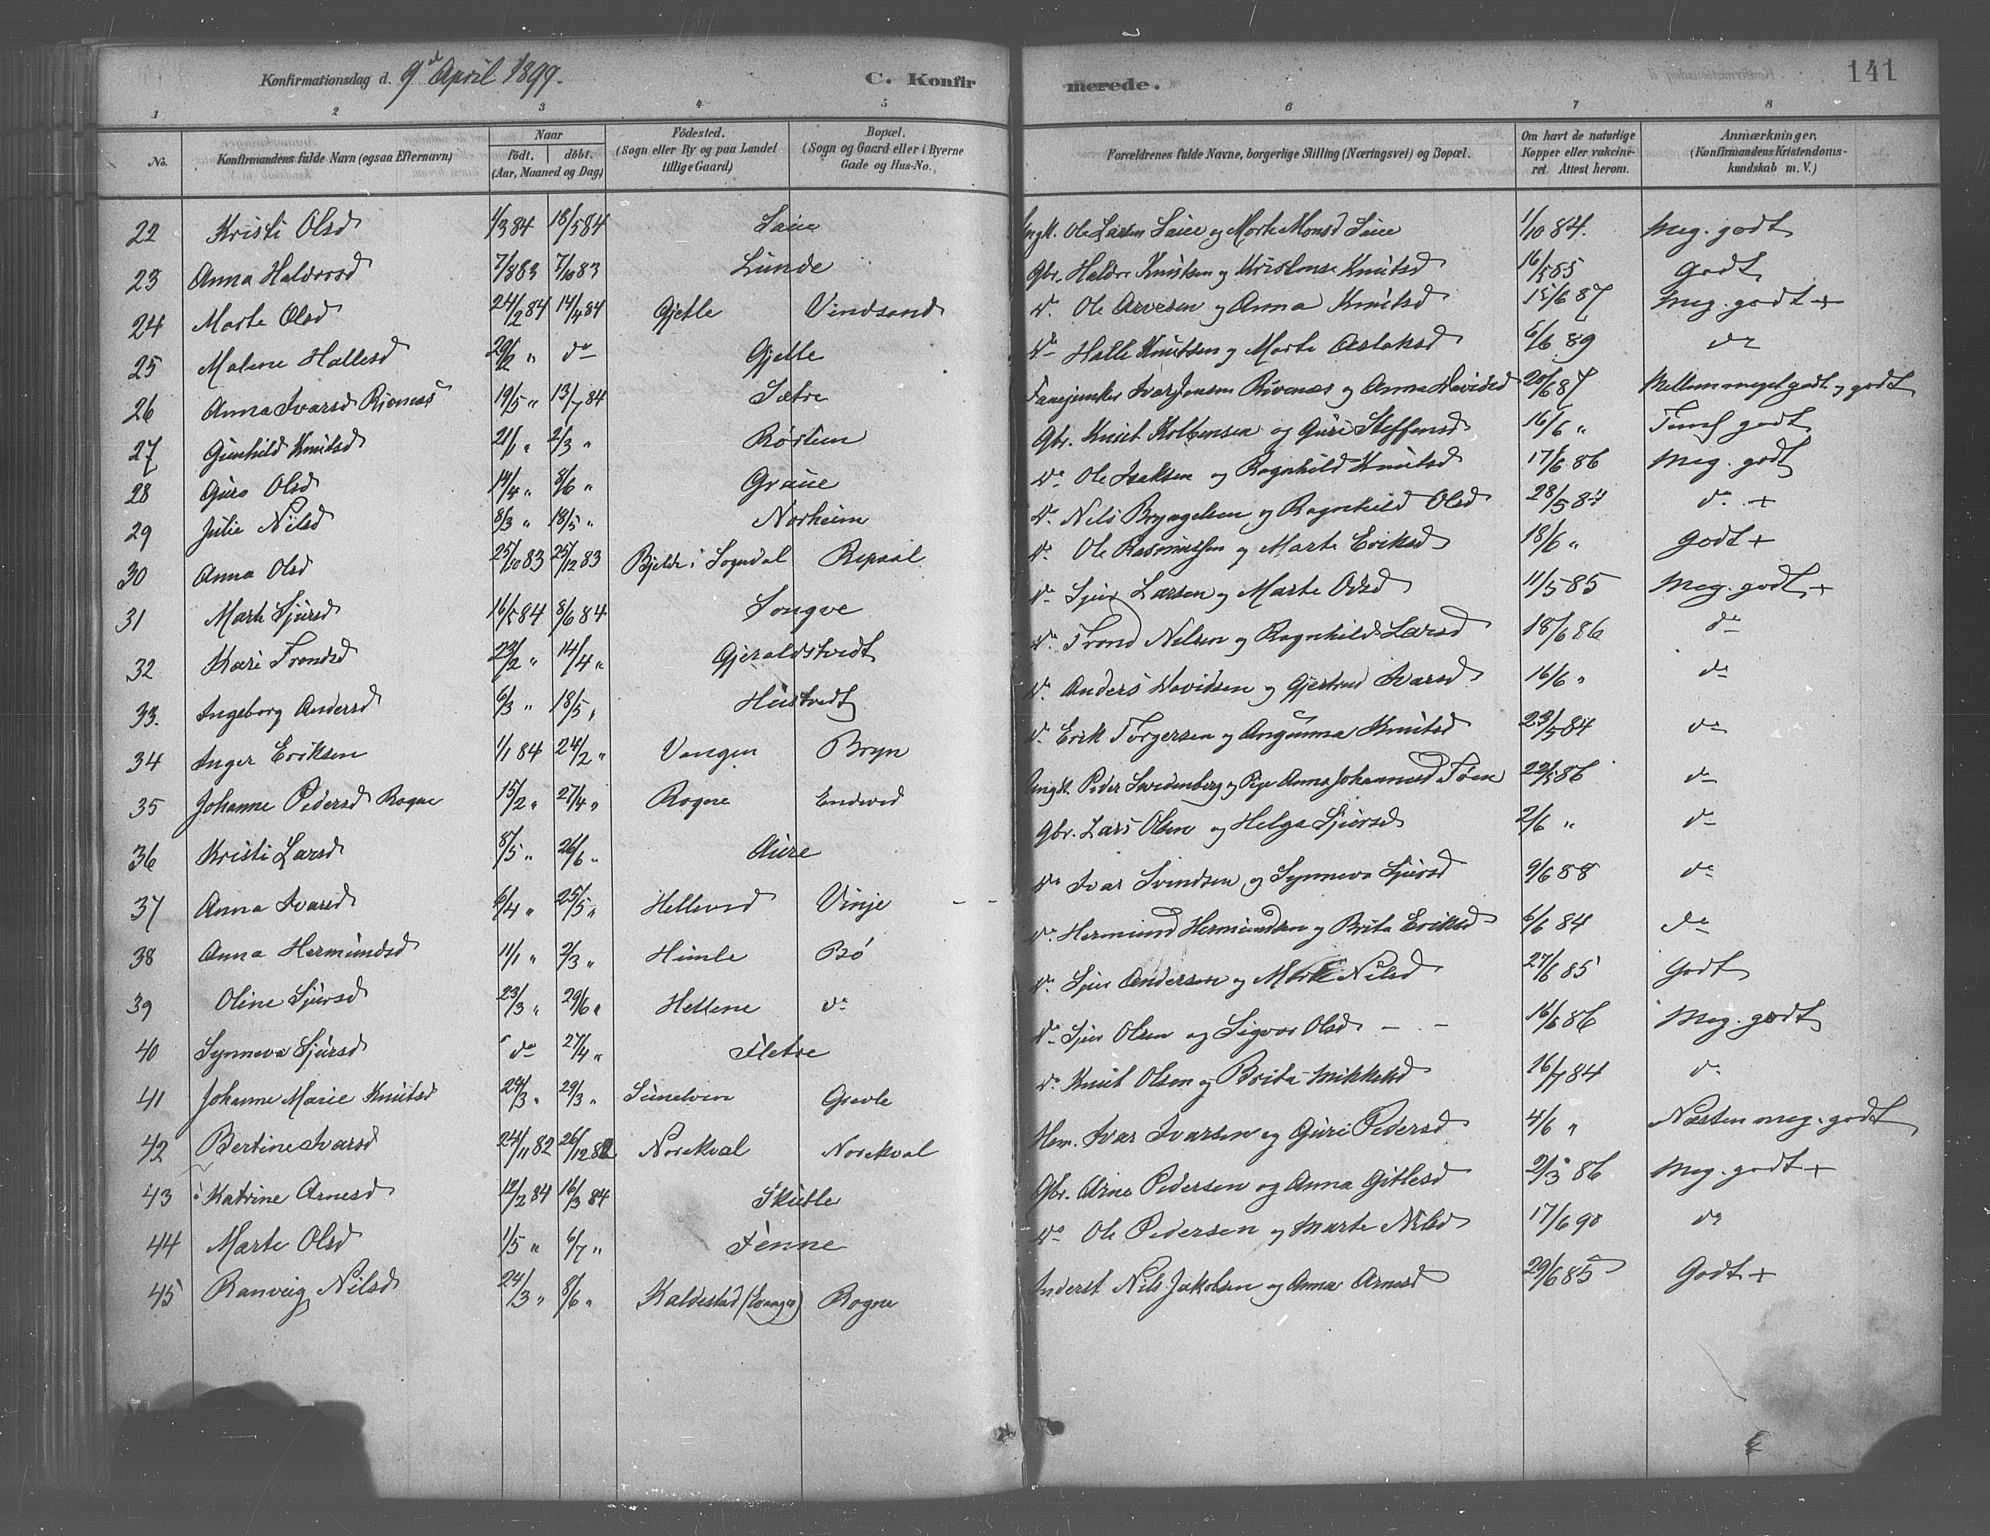 Konfirmationsdag d. 9de April 1899.
C. Konfirmerede.
141
1 2 3 4 5 6 7 8
No. Konfirmandens fulde Navn (ogsaa Efternavn) Naar født. døbt. (Aar, Maaned og Dag) Fødested. (Sogn eller By og paa Landet tillige Gaard) Bopæl. (Sogn og Gaard eller i Byerne Gade og Hus-No. Forældrenes fulde Navne, borgerlige Stilling (Næringsvei) og Bopæl. Om havt de naturlige Kopper eller vakcineret. Attest herom. Anmærkninger. (Konfirmandens Kristendomskundskab m. V.)
22 Kristi Olsd 1/3 84 18/5 84 Saue Ole Larsen Saue og Marte Monsd Saue 1/10 84. Meg. godt
23 Anna Haldorsd 7/8 83 7/10 83 Lunde Gbr. Haldor Knutsen og Kristense Knutsd 16/5 85 Godt
24 Marte Olsd 24/2 84 14/4 84 Gjelle Vindsand do. Ole Arvesen og Anna Knutsd 15/6 87 Meg. godt +
25 Malene Hallesd 29/2 " do Gjelle do Halle Knutsen og Marte Aslaksd 6/6 89 do
26 Anna Ivarsd Rivenæs 19/5 " 13/7 84 Sætre Fanejunker Ivar Jonsen Rivenæs og Anna Davidsd 20/6 87 Mellem meget godt og godt
27 Gunhild Knutsd 21/1 " 2/3 " Rostun Gbr. Knut Kolbensen og Guri Steffensd 16/6 " Temf godt
28 Guro Olsd 14/4 " 8/6 " Graue do. Ole Isaksen og Ragnhild Knutsd 17/6 86 Meg. godt
29 Julie Nilsd 8/3 " 18/5 " Norheim do. Nils Bryngelsen og Ragnhild Olsd 28/5 84 do +
30 Anna Olsd 25/10 83 25/12 83 Bjelde i Sogndal Repaal do. Ole Rasmussen og Marte Eriksd 18/6 " Godt +
31 Marte Sjursd 16/5 84 8/6 84 Songve do. Sjur Larsen og Marte Odsd 11/5 85 Meg. godt +
32 Kari Trondsd 23/2 " 14/4 " Gjeraldstvedt do. Trond Nilsen og Ragnhild Larsd 18/6 86 do
33. Ingeborg Andersd 6/3 " 18/5 " Hustvedt do. Anders Davidsen og Gjertrud Ivarsd 16/6 " do
34 Inger Eriksen 1/1 84 24/2 " Vangen Bryn do. Erik Torgersen og Angunna Knutsd 23/5 84 do
35 Johanne Pedersd Rogne 15/2 " 27/4 " Rogne Endeved Ungk. Peder Svedenberg og Pge Anna Johannesd Tøen 22/5 86 do
36 Kristi Larsd 8/5 " 26/6 " Aure Gbr. Lars Olsen og Helga Sjursd 2/6 " do
37 Anna Ivarsd 6/4 " 25/5 " Helleved Vinje - - do Ivar Svendsen og Synneva Sjursd 9/6 88 do
38 Anna Hermundsd 11/1 " 2/3 " Himle Bø do. Hermund Hermundsen og Brita Eriksd 6/6 84 do
39 Oline Sjursd 23/3 " 29/6 " Hellene do do. Sjur Andersen og Marte Nilsd 27/6 85 Godt
40 Synneva Sjursd do 27/4 " Fletre do. Sjur Olsen og Sigvor Olsd - - 16/6 86 Meg. godt
41 Johanne Marie Knutsd 24/3 " 29/3 " Sunelven Grevle do. Knut Olsen og Brita Mikkelsd 16/7 84 do
42 Bertine Ivarsd 24/11 82 26/12 82 Norekval Norekval Hsm. Ivar Ivarsen og Guri Pedersd 4/6 " Næsten meg. godt
43 Katrine Arnesd 12/2 84 16/3 84 Skutle Gbr. Arne Pedersen og Anna Gitlesd 2/3 86 Meg. godt +
44 Marte Olsd 1/5 " 6/7 " Fenne do Ole Pedersen og Marte Nilsd 17/6 90 do
45 Ranveig Nilsd 24/3 " 8/6 " Kaldestad (Evanger) Rogne Inderst Nils Jakobsen og Anna Arnesd 29/6 85 Godt +